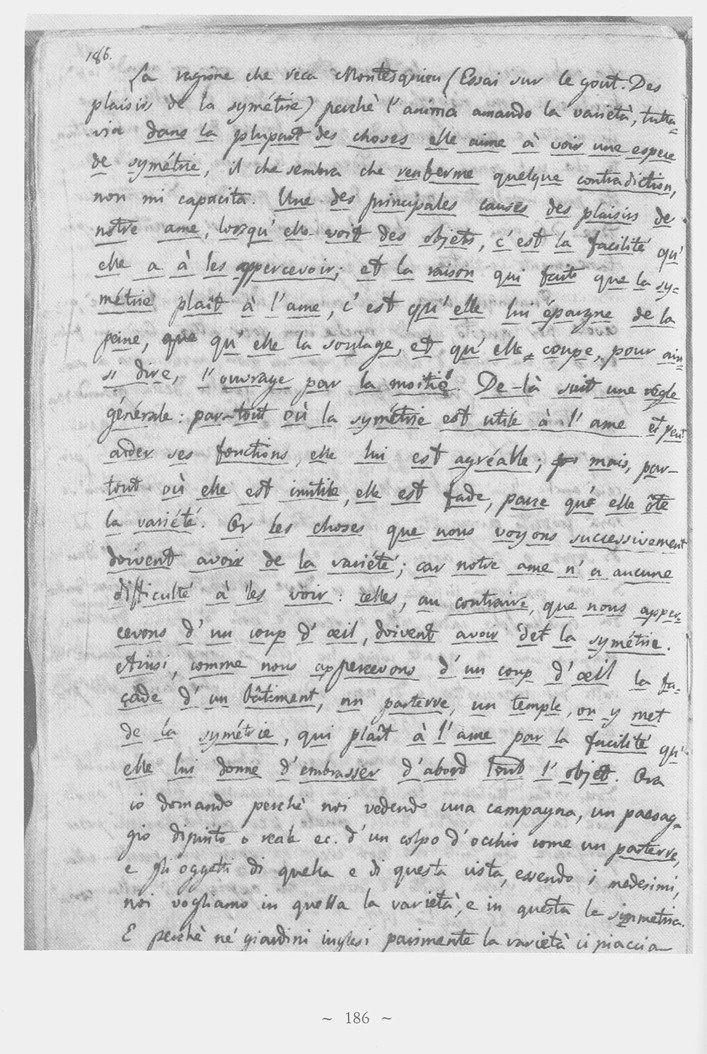 186.
La ragione che reca Montesquieu (Essai sur le gout. Des
plaisirs de la symétrie) perchè l'anima amando la varietà, tutta=
via dans la plupart des choses elle aime à voir une espece
de symétrie, il che sembra che renferme quelque contradiction,
non mi capacita. Une des principales causes des plaisirs de
notre ame, lorsqu'elle voit des objets, c'est la facilité qu'
elle a à les appercevoir; et la raison qui fait que la sy=
métrie plait à l'ame, c'est qu'elle lui épargne de la
peine, que qu'elle la soulage, et qu'elle coupe, pour ain=
si dire, l'ouvrage par la moitié. De-là suit une règle
générale: par-tout où la symétrie est utile à l'ame et peut
aider ses fonctions, elle lui est agréable; mais, par-
tout où elle est inutile, elle est fade, parce qu'elle ôte
la variété. Or les choses que nous voyons successivement
doivent avoir de la variété; car notre ame n'a aucune
difficulté à les voir: celles, au contraire, que nous apper=
cevons d'un coup d'œil, doivent avoir de la symétrie.
Ainsi, comme nous appercevons d'un coup d'œil la fa=
çade d'un bâtiment, un parterre, un temple, on y met
de la symétrie, qui plaît à l'ame par la facilité qu'
elle lui donne d'embrasser d'abord tout l'objet. Ora
io domando perchè noi vedendo una campagna, un paesag=
gio dipinto o reale ec. d'un colpo d'occhio come un parterre,
e gli oggetti di quella e di questa vista, essendo i medesimi,
noi vogliamo in quella la varietà, e in questa la simmetria.
E perchè ne' giardini inglesi parimente la varietà ci piaccia
~ 186 ~